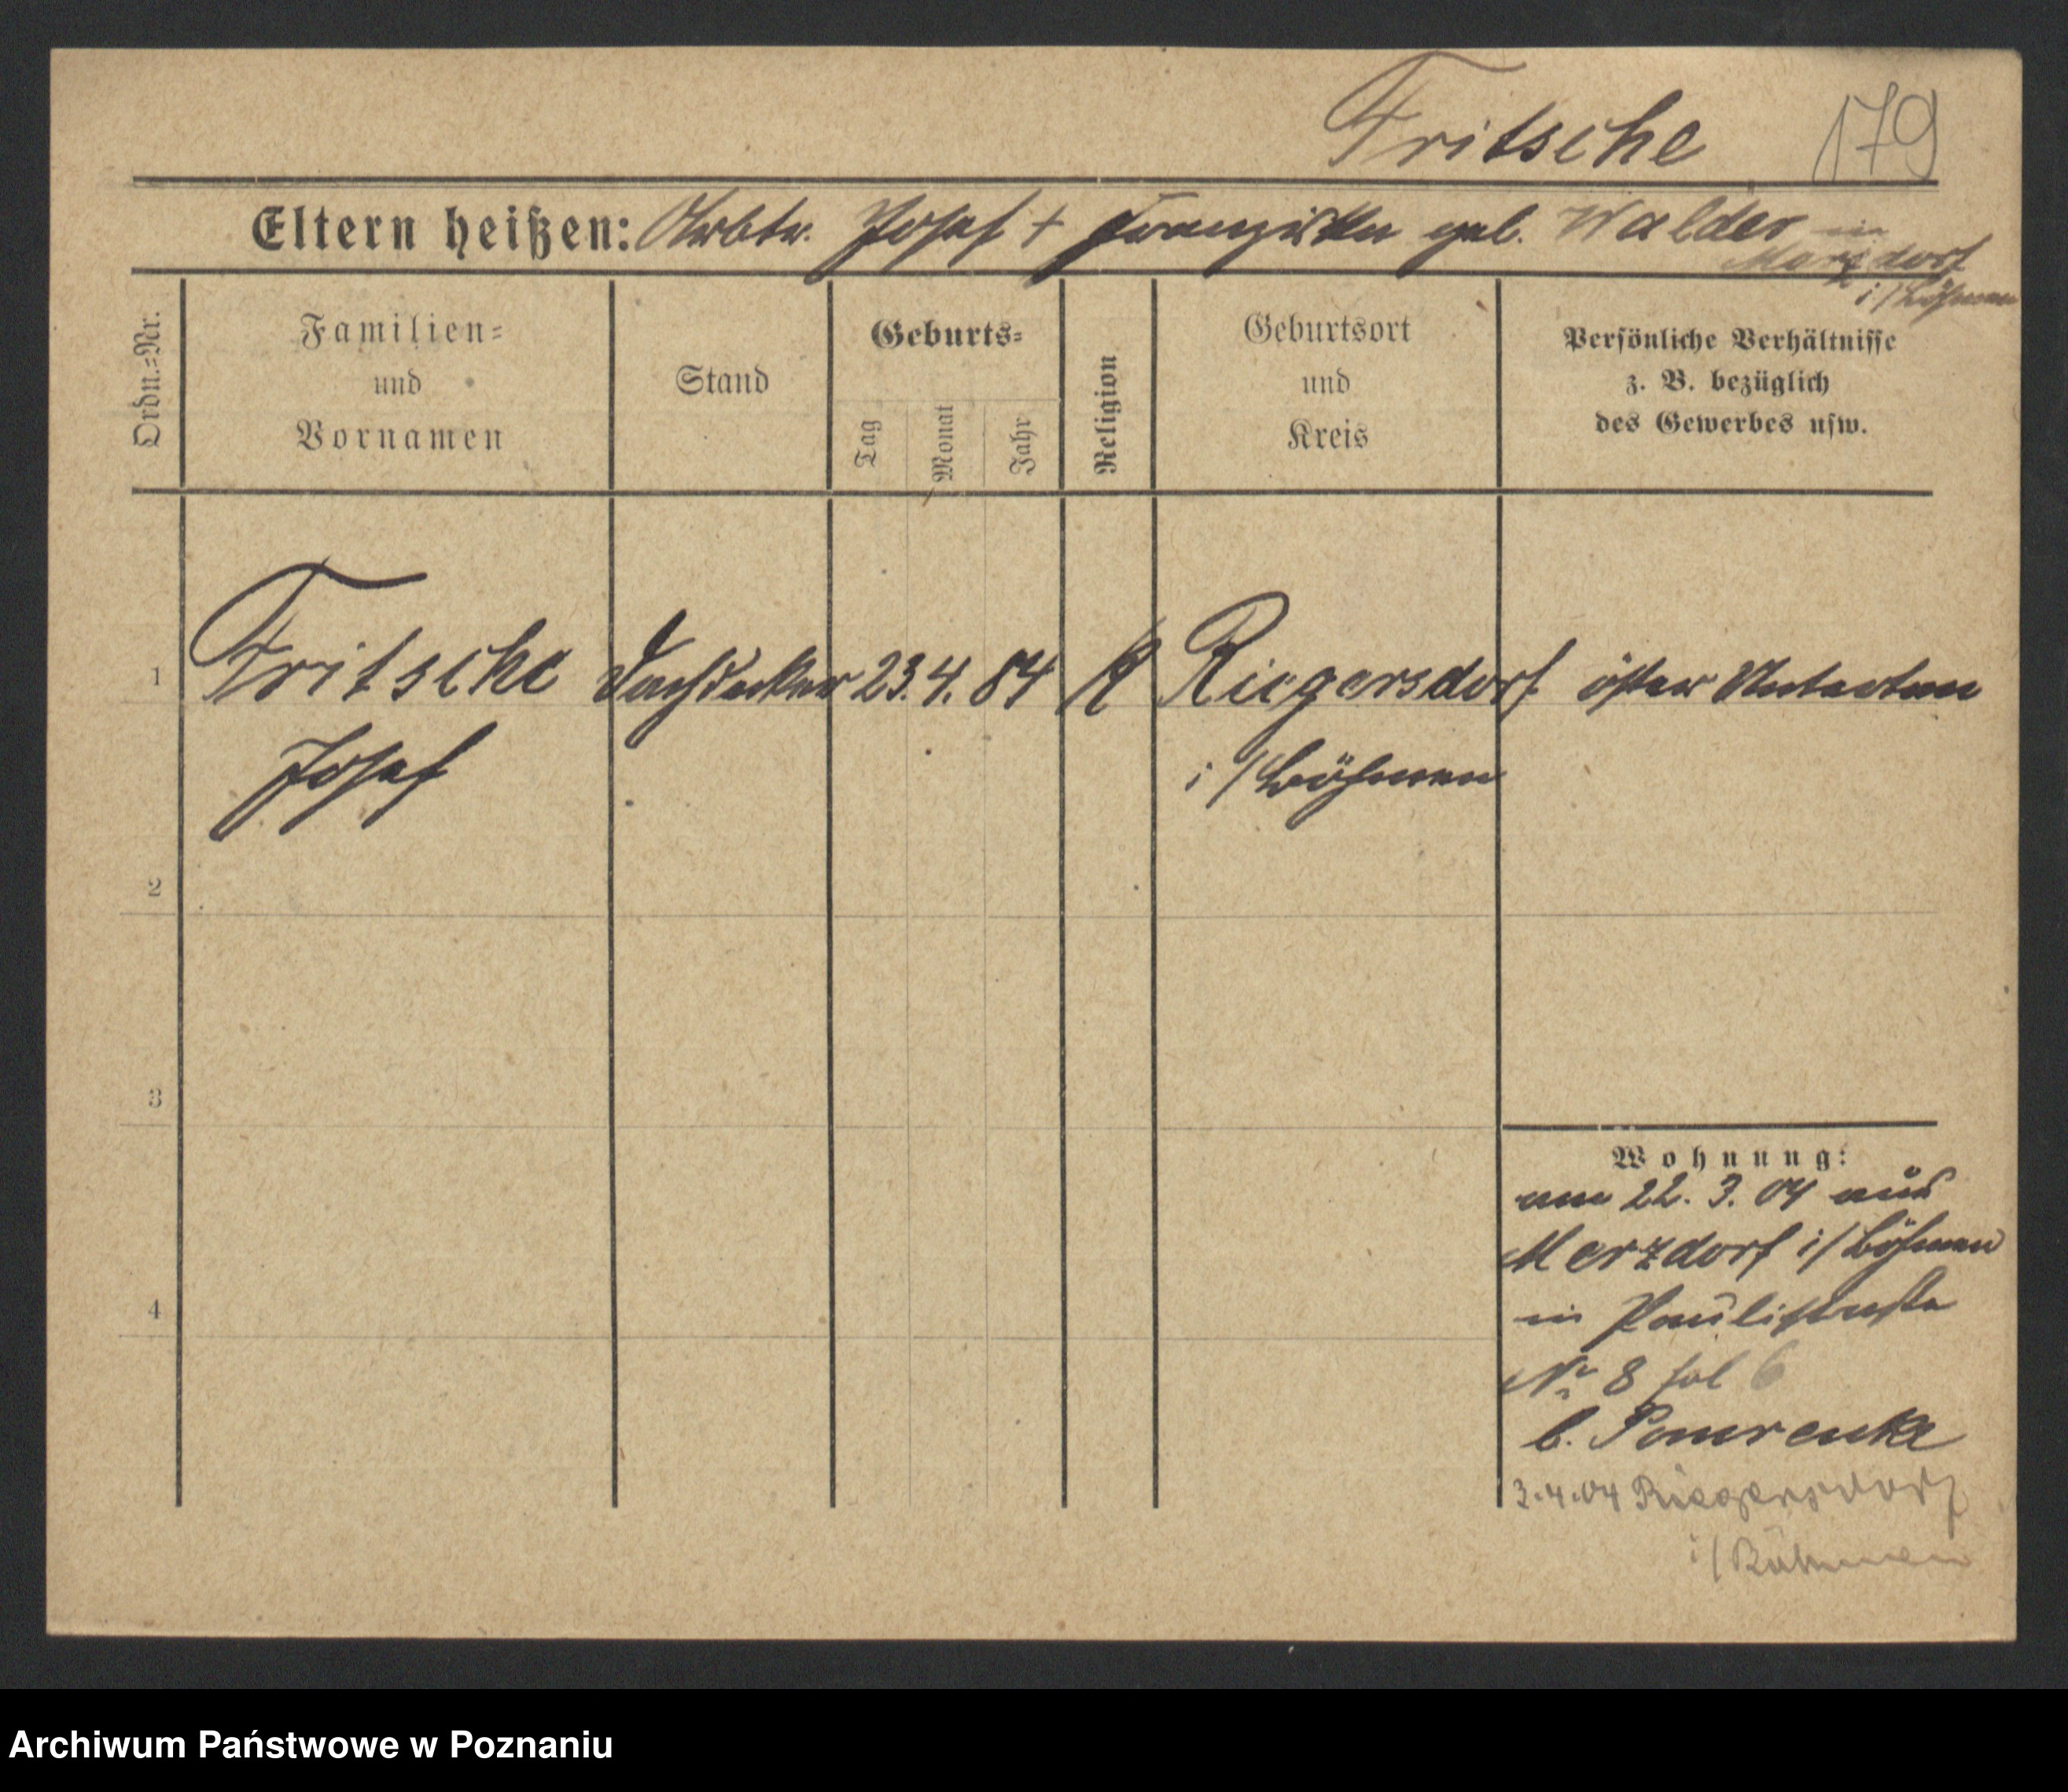 Fritsche 179
Eltern heißen: Arbtr. Josef + Franziska geb. Walder in
Merzdorf
i/Böhmen
Ordn.-Nr.
Familien-
und
Vornamen
Stand
Geburts-
Tag
Monat
Jahr
Religion
Geburtsort
und
Kreis
Persönliche Verhältnisse
z. B. bezüglich
des Gewerbes usw.
1 Fritsche Dachdecker 23. 4. 84 K Riegersdorf öster Untertan
Josef i/Böhmen
2
3
4
Wohnung:
am 22. 3. 04 aus
Merzdorf i/Böhmen
in Paulistraße
No 8 fol 6
b. Pomrenke
3.4.04 Riegersdorf
i/Böhmen
Archiwum Państwowe w Poznaniu